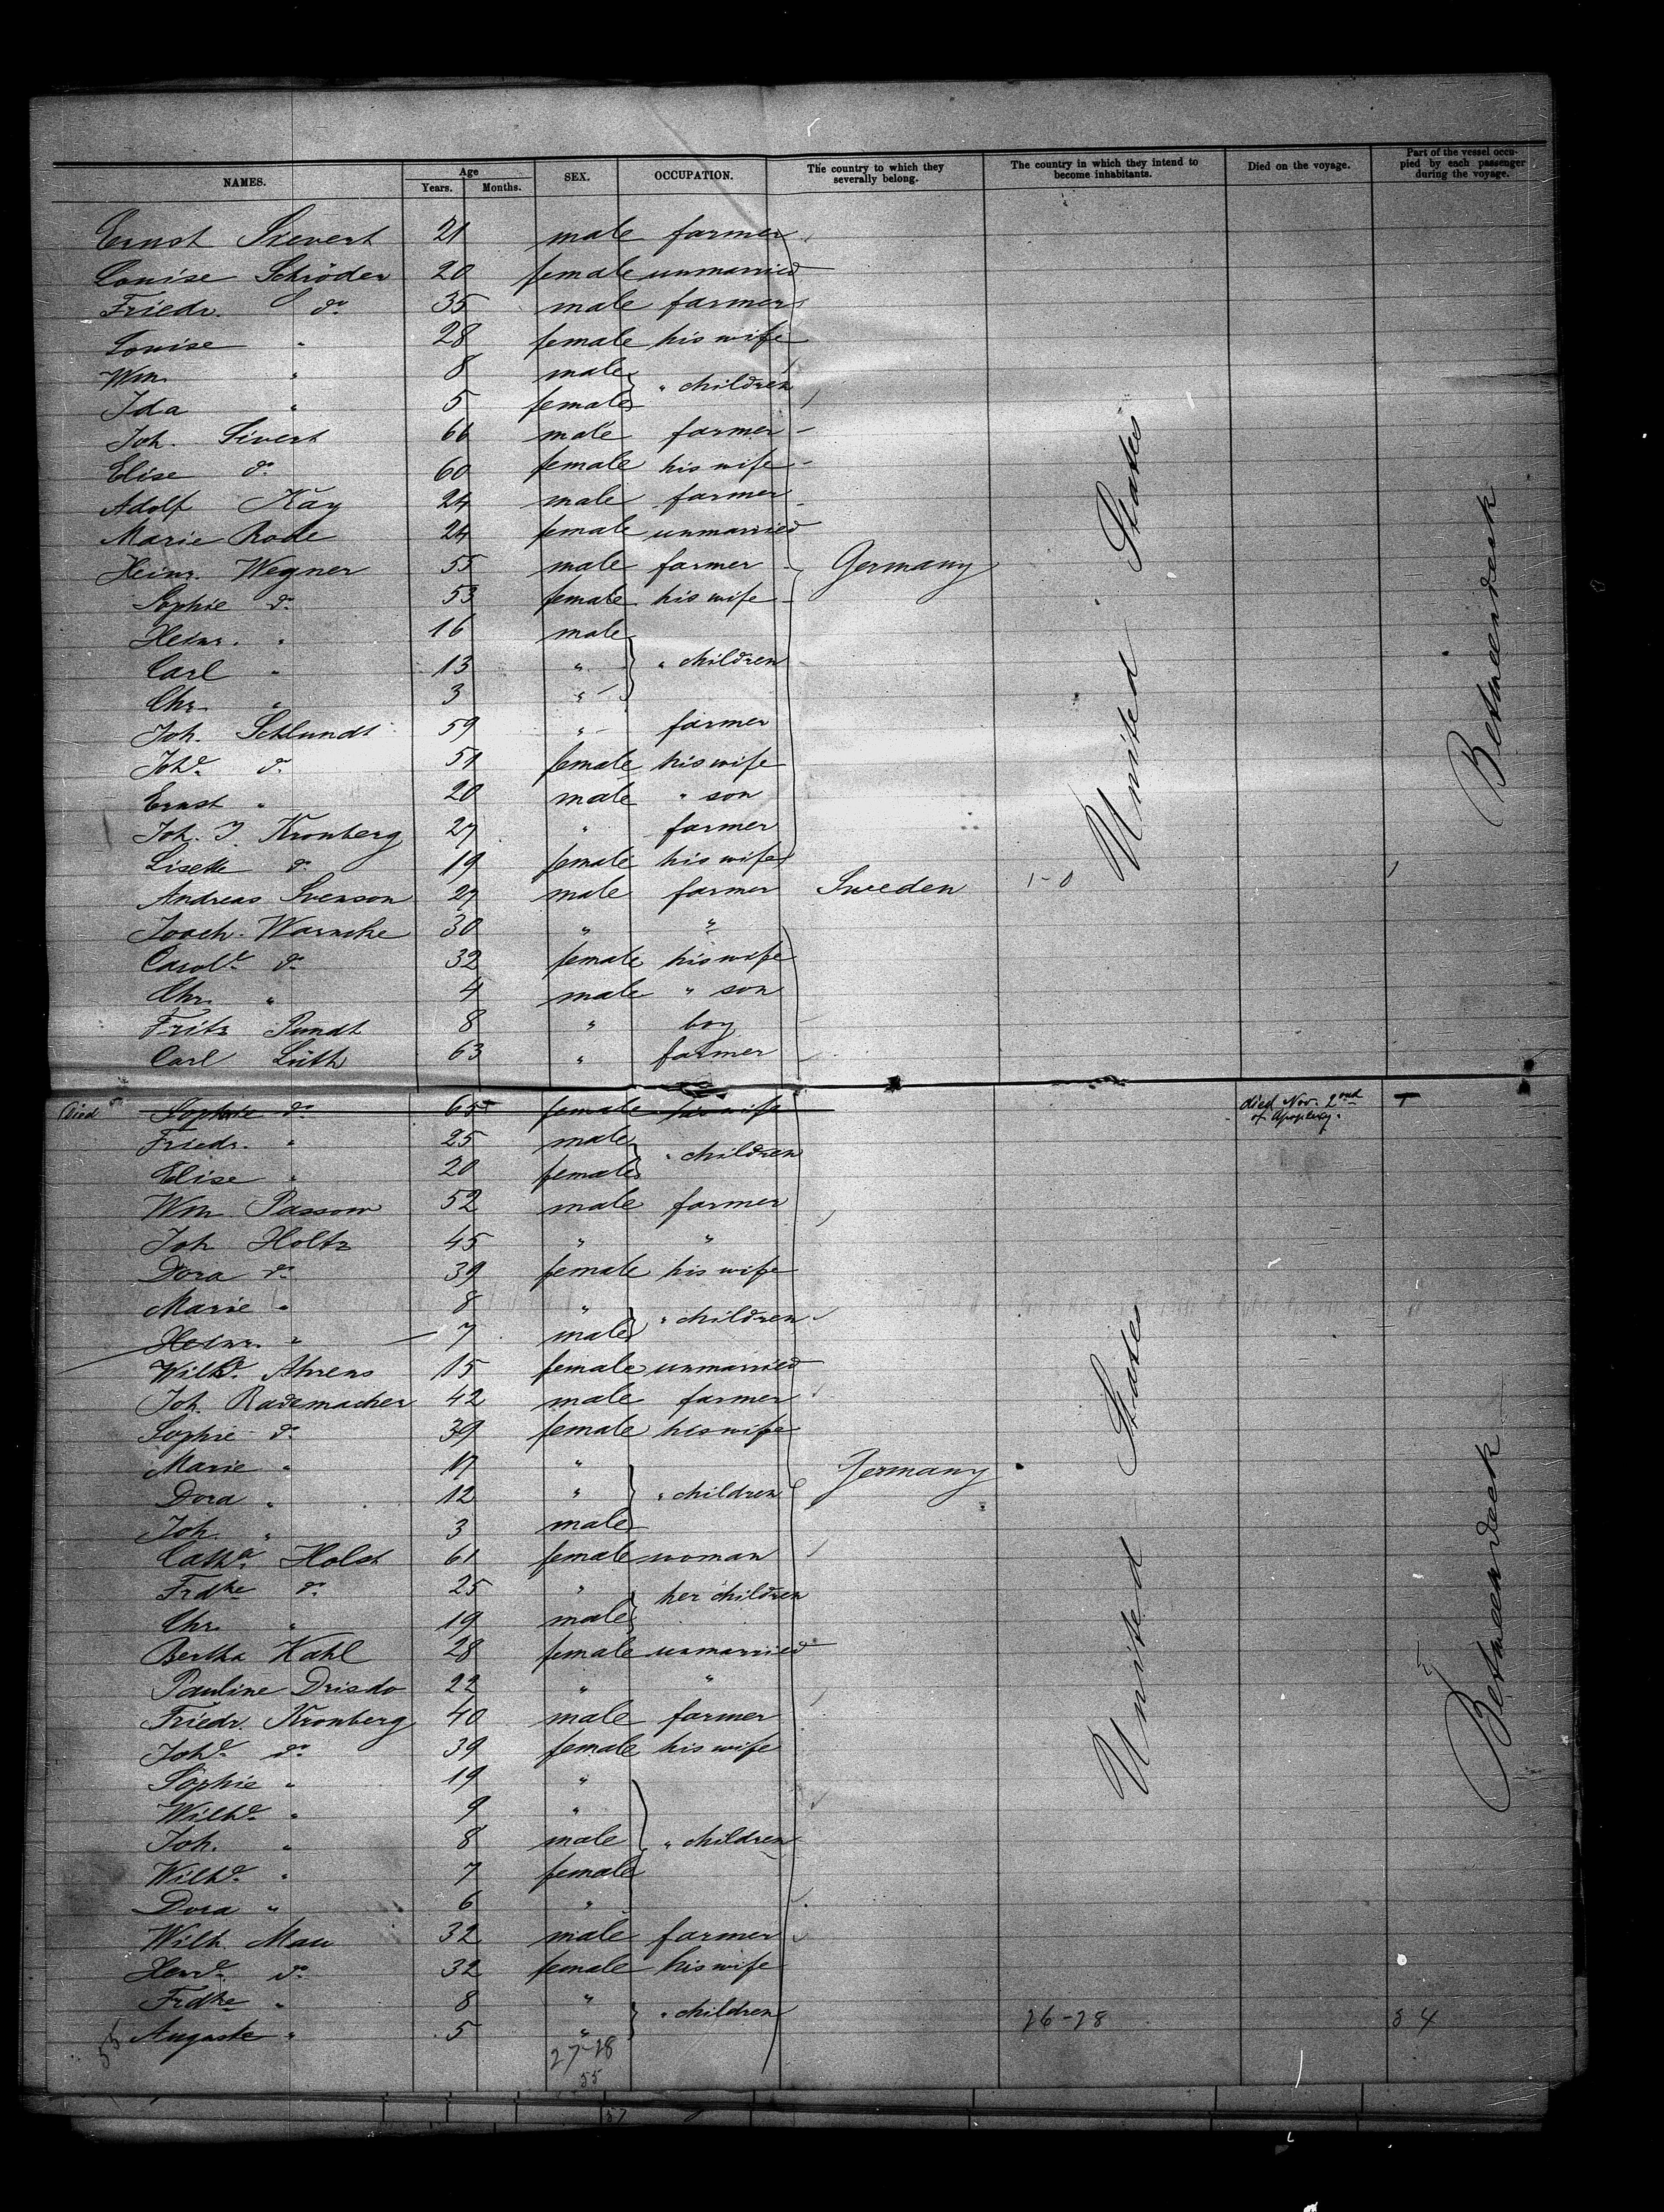 NAMES. Age Years. Months. SEX. OCCUPATION. The country to which they severally belong. The country in which they intend to become inhabitants. Died on the voyage. Part of the vessel occupied by each passenger during the voyage.
Ernst Sievert 21 male farmer
Louise Schröder 20 female unmarried
Friedr. do 35 male farmer
Louise " 28 female his wife
Wm. " 8 male
" children
Ida " 5 female
Joh. Sivert 66 male farmer
Elise do 60 female his wife
Adolf Kay 24 male farmer
Marie Rode 24 female unmarried
Heinr. Wegner 55 male farmer Germany United States Betweendeck
Sophie do 53 female his wife
Heinr. " 16 male
Carl " 13 " " children
Chr. " 3 "
Joh. Schlundt 59 " farmer
Johe do 51 female his wife
Ernst " 20 male " son
Joh. J. Kronberg 27 " farmer
Lisette do 19 female his wife
Andreas Svenson 27 male farmer Sweden 1-0
Joach. Warncke 30 " "
Carole do 32 female his wife
Chr. " 4 male " son
Fritz Pundt 8 " boy
Carl Lüth 63 " farmer
Died Sophie do 65 female his wife died Nov. 9nd of Apoplexy.
Friedr. " 25 male
" children
Elise " 20 female
Wm Passow 52 male farmer
Joh Holtz 45 " "
Dora do 39 female his wife
Marie " 8 "
" children
Heinr. " 7 male
Wilhe Ahrens 15 female unmarried
Joh. Rademacher 42 male farmer
Sophie do 39 female his wife
Marie " 17 " Germany United States Betweendeck
Dora " 12 " " children
Joh. " 3 male
Catha Holst 61 female woman
Frdke do 25 " her children
Chr. " 19 male
Bertha Kahl 28 female unmarried
Pauline Drisdo 22 " "
Friedr. Kronberg 40 male farmer
Johe do 39 female his wife
Sophie " 19 "
Wilhe " 9 "
Joh. " 8 male " children
Wilhe " 7 female
Dora " 6 "
Wilh Mau 32 male farmer
Henre do 32 female his wife
Frdke " 8 "
" children
Auguste " 5 " 26-28 54
55
27-28
55